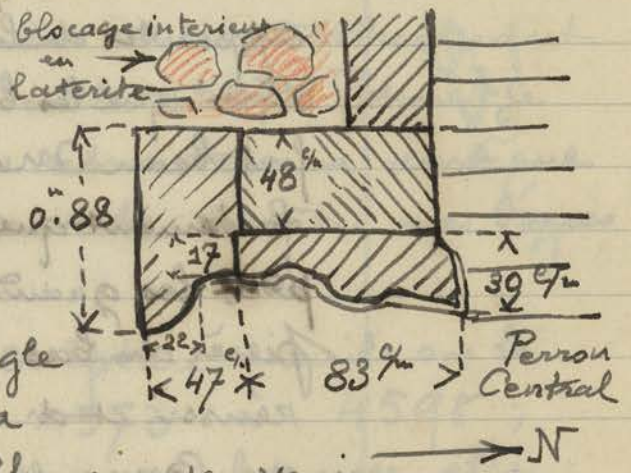 blocage interieur
en
laterite
48 c/m
0.m88
17
39 c/m
22
47 c/m
83 c/m
Perron
Central
gle
a
N